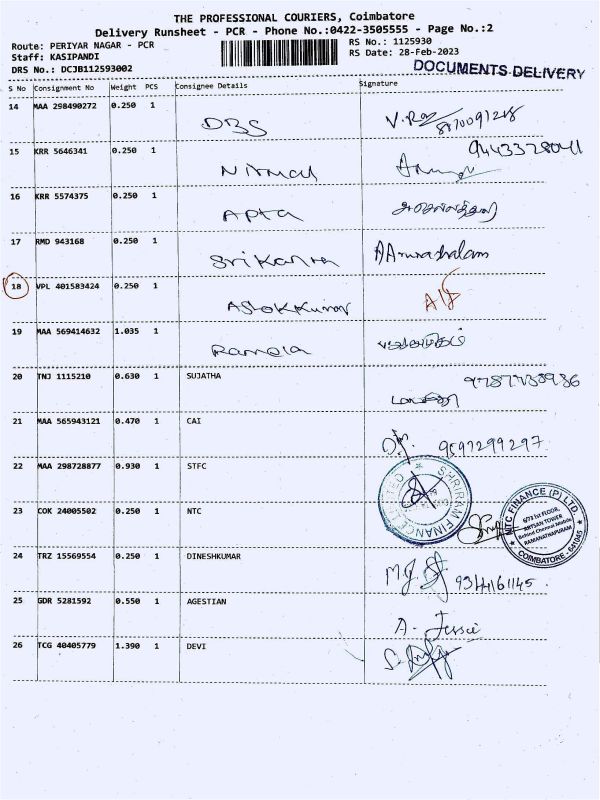 THE PROFESSIONAL COURIERS, Coimbatore
Delivery Runsheet - PCR - Phone No.:0422-3505555 - Page No.:2
Route: PERIYAR NAGAR - PCR RS No.: 1125930
Staff: KASIPANDI RS Date: 28-Feb-2023
DRS No.: DCJB112593002 DOCUMENTS DELIVERY
S No Consignment No Weight PCS Consignee Details Signature
14 MAA 298490272 0.250 1 DBS
15 KRR 5646341 0.250 1 Nirmal
16 KRR 5574375 0.250 1 APTA
17 RMD 943168 0.250 1 Srikanth A Arunachalam
18 VPL 401583424 0.250 1 AshokKumar
19 MAA 569414632 1.035 1 Ramola
20 TNJ 1115210 0.630 1 SUJATHA
21 MAA 565943121 0.470 1 CAI 9597299297
22 MAA 298728877 0.930 1 STFC SHRIRAM FINANCE LIMITED
23 COK 24005502 0.250 1 NTC
NTC FINANCE (P) LTD.
6/73 1st FLOOR,
RAMANATHAPURAM
COIMBATORE - 641045
24 TRZ 15569554 0.250 1 DINESHKUMAR
25 GDR 5281592 0.550 1 AGESTIAN A. Jessie
26 TCG 40405779 1.390 1 DEVI